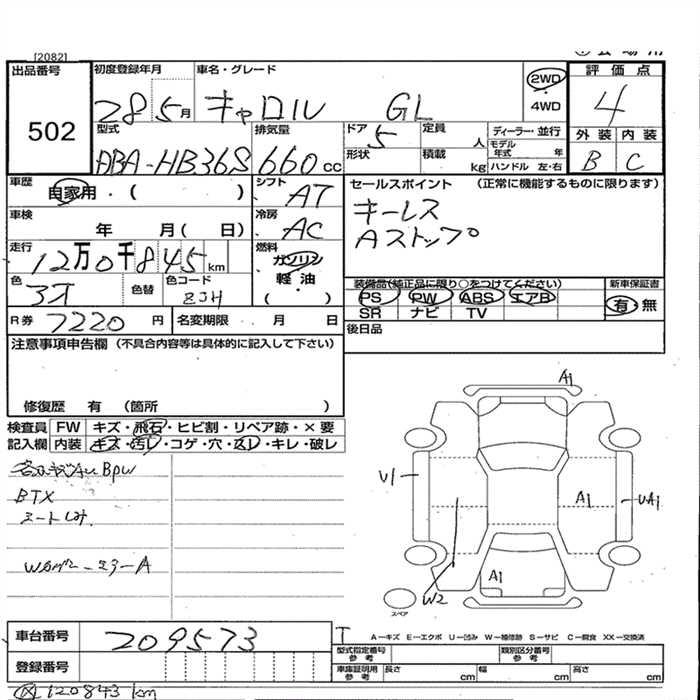 [2082]
出品番号
502
初度登録年月
28 5月
車名・グレード
キャロル GL
2WD
・
4WD
評価点
4
外装 内装
B C
型式
DBA-HB36S
排気量
660cc
ドア 5
形状
定員 人
積載 kg
ディーラー・並行
モデル年式 年
ハンドル 左・右
車歴
自家用・( )
車検
年 月( 日)
シフト
AT
冷房
AC
セールスポイント (正常に機能するものに限ります)
キーレス
Aストップ
走行
12万0千845km
燃料
ガソリン
軽・油
( )
色
色替
色コード
ZJH
装備品(純正品に限り○をつけてください)
PS PW ABS エアB
SR ナビ TV
新車保証書
有・無
R券 7220円
名変期限 月 日
後日品
注意事項申告欄 (不具合内容等は具体的に記入して下さい)
修復歴 有 (箇所 )
検査員 FW キズ・飛石・ヒビ割・リペア跡・×要
記入欄 内装 キズ・汚レ・コゲ・穴・凹レ・キレ・破レ
BTX
シートしみ
A1
U1
A1
UA1
A1
W2
スペア
A－キズ E－エクボ U－凹み W－補修跡 S－サビ C－腐食 XX－交換済
車台番号
209573
登録番号
型式指定番号
参考
類別区分番号
参考
車庫証明用
参考
長さ cm
幅 cm
高さ cm
120843km